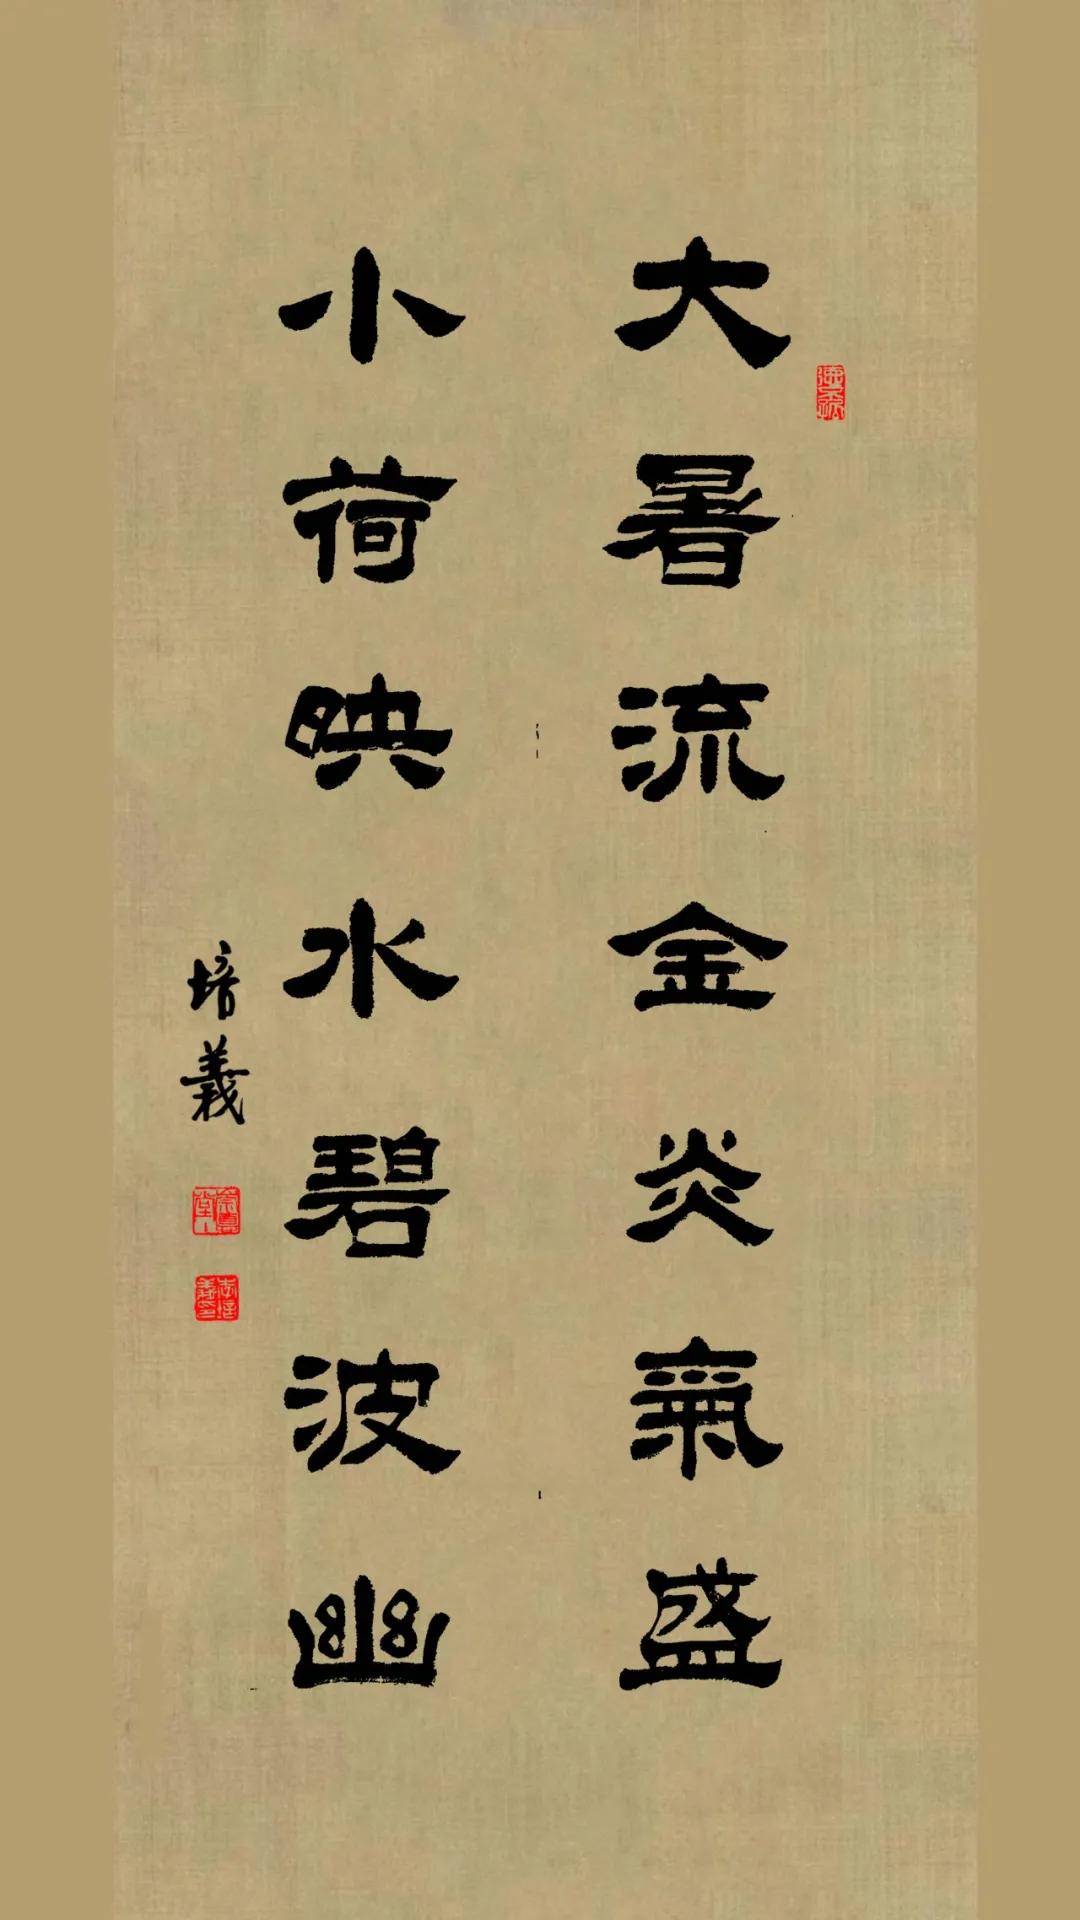 大暑流金炎氣盛
小荷映水碧波幽
培義